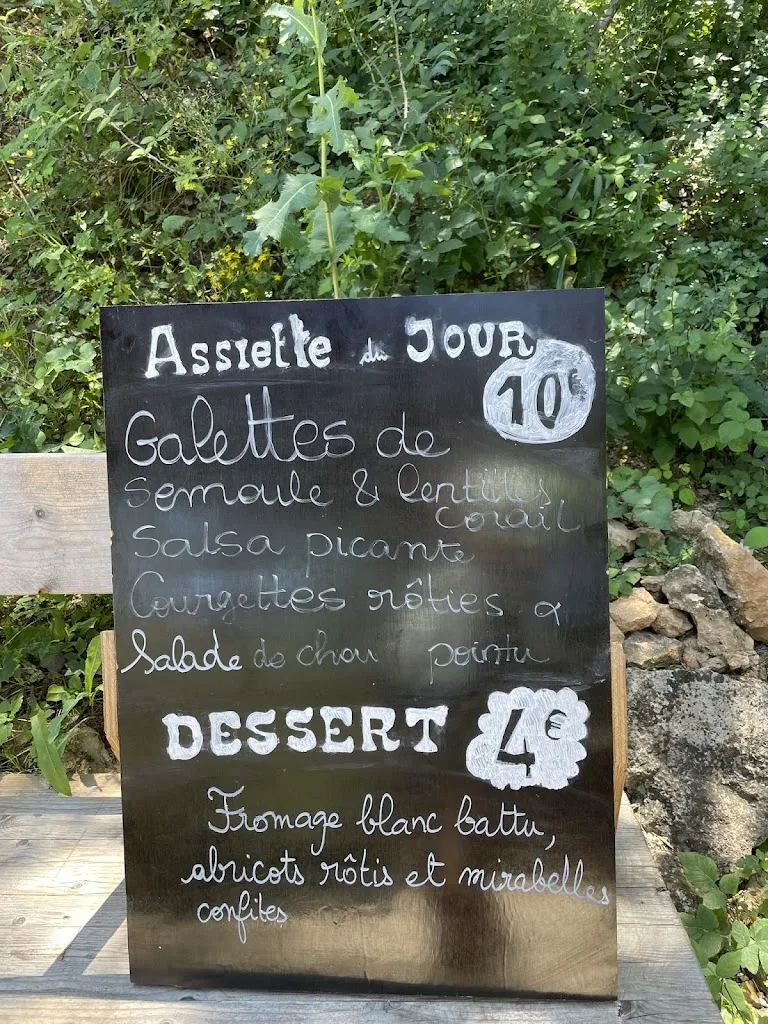 Assiette du JOUR
10€
Galettes de
semoule & lentilles
corail
Salsa picante
Courgettes rôties &
Salade de chou pointu
DESSERT 4€
Fromage blanc battu,
abricots rôtis et mirabelles
confites